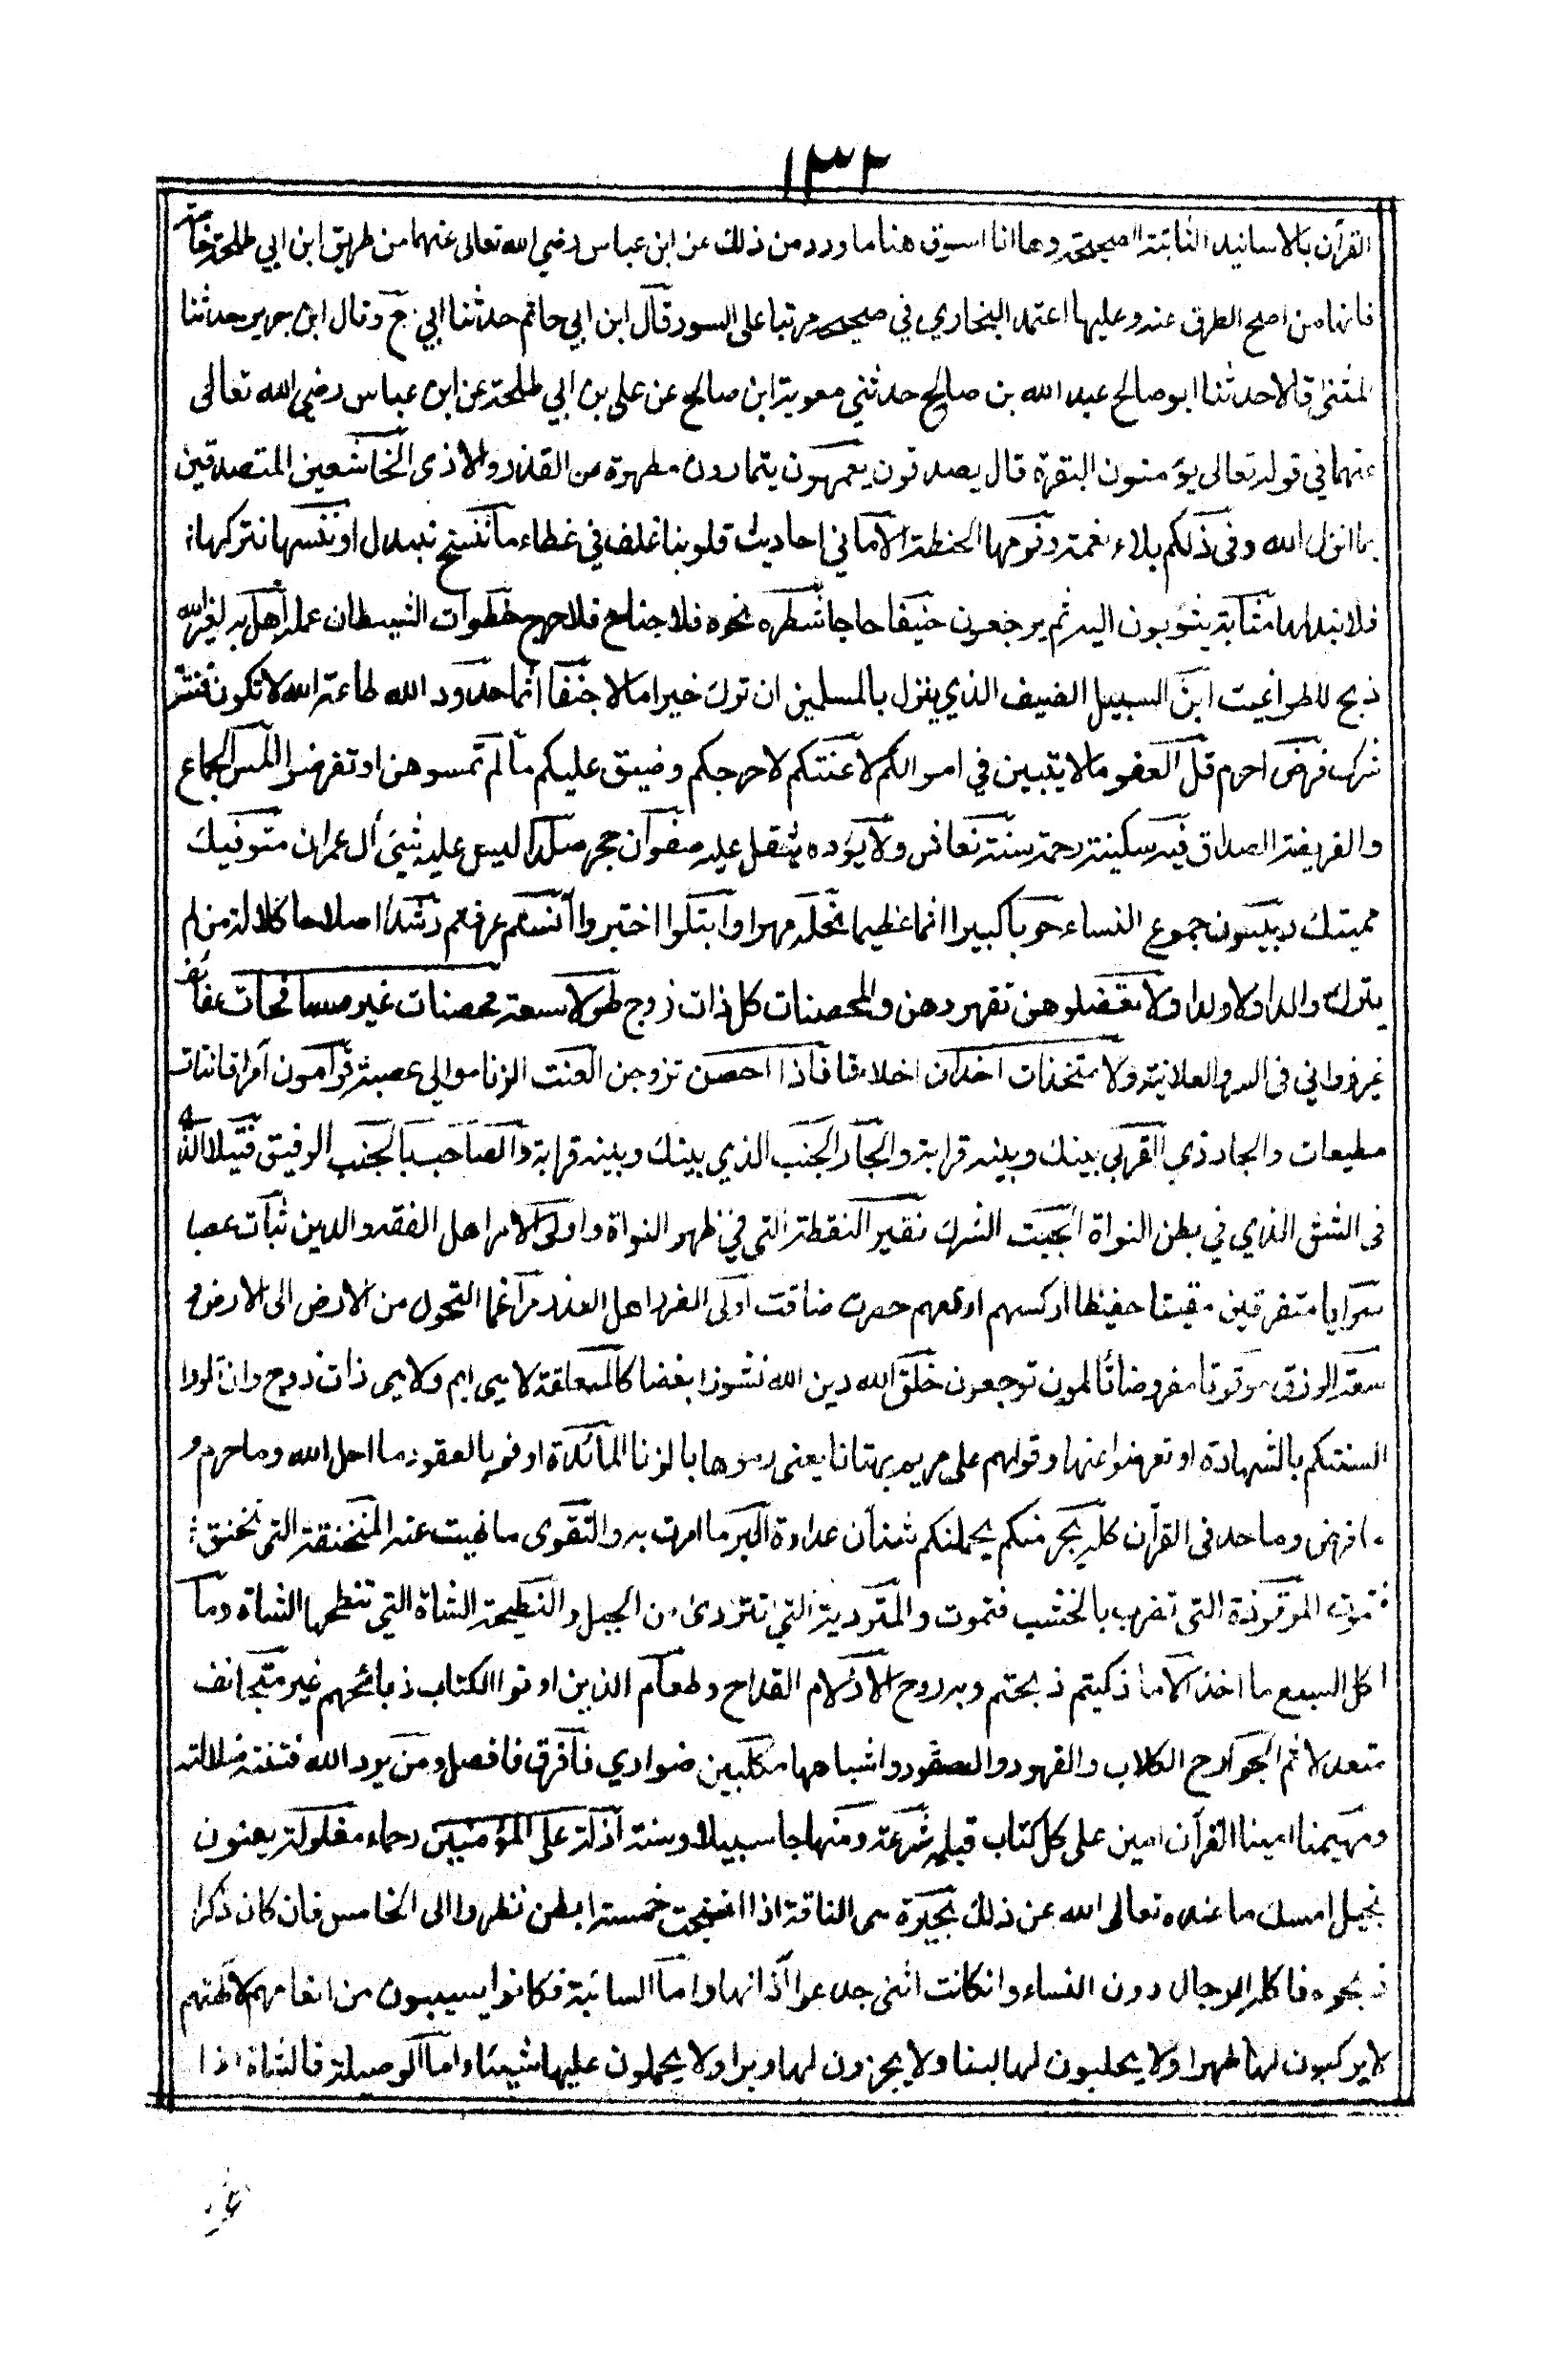 ١٣٢
القرآن بالاسانيد الثابتة الصحيحة وها انا اسوق هنا ما ورد من ذلك عن ابن عباس رضي الله تعالى عنهما من طريق ابن ابي طلحة خاصة
فانها من اصح الطرق عنه وعليها اعتمد البخاري في صحيحه مرتبا على السور قال ابن ابي حاتم حدثنا ابي ح وقال ابن جرير حدثنا
المثنى قالا حدثنا ابو صالح عبد الله بن صالح حدثني معوية ابن صالح عن علي بن ابي طلحة عن ابن عباس رضي الله تعالى
عنهما في قوله تعالى يؤمنون البقرة قال يصدقون يعمهون يتمارون مطهرة من القذر والاذى الخاشعين المتصدقين
بما انزل الله وفي ذلكم بلاء نعمة وفومها الحنطة الا اماني احاديث قلوبنا غلف في غطاء ما ننسخ نبدل او ننسها نتركها
فلا نبدلها مثابة يثوبون اليه ثم يرجعون حنيفا حاجا شطره نحوه فلا جناح فلا حرج خطوات الشيطان عمله أهل به لغير الله
ذبح للطواغيت ابن السبيل الضيف الذي ينزل بالمسلمين ان ترك خيرا مالا جنفا اثما حدود الله طاعة الله لا تكون فتنة
شرك فرض احرم قل العفو ما لا يتبين في اموالكم لاعنتكم لاحرجكم وضيق عليكم ما لم تمسوهن او تفرضوا المس الجماع
والفريضة الصداق فيه سكينة رحمة سنة نعاس ولا يؤده يثقل عليه صفوان حجر صلدا ليس عليه شيئ آل عمران متوفيك
مميتك ربيون جموع النساء حوبا كبيرا اثما عظيما نحلة مهرا وابتلوا اختبروا آنستم عرفتم رشدا صلاحا كلالة من لم
يترك والدا ولا ولدا ولا تعضلوهن تقهروهن والمحصنات كل ذات زوج طولا سعة محصنات غير مسافحات عفائف
غير زواني فى السر والعلانية ولا متخذات اخدان اخلاء فاذا احصن تزوجن العنت الزنا موالي عصبة قوامون أمراء قانتات
مطيعات والجار ذي القربى بينك وبينه قرابة والجار الجنب الذي بينك وبينه قرابة والصاحب بالجنب الرفيق فتيلا الذي
فى الشق الذي في بطن النواة الجبت الشرك نقير النقطة التي في ظهر النواة واولى الامر اهل الفقه والدين ثبات عصبا
سرايا متفرقين مقيتا حفيظا اركسهم اوقعهم حصرت ضاقت اولى الضرر اهل العذر مراغما التحول من الارض الى الارض و
سعة الرزق موقوتا مفروضا تألمون توجعون خلق الله دين الله نشوزا بغضا كالمعلقة لا هي ايم ولا هي ذات زوج وان تلووا
السنتكم بالشهادة او تعرضوا عنها وقولهم على مريم بهتانا يعنى رموها بالزنا المائدة اوفوا بالعقود ما احل الله وما حرم و
ما فرض وما حد فى القرآن كله يجرمنكم يحملنكم شنأن عداوة البر ما امرت به والتقوى ما نهيت عنه المنخنقة التى تخنق
فتموت الموقوذة التى تضرب بالخشب فتموت والمتردية التي تتردى من الجبل والنطيحة الشاة التي تنطحها الشاة وما
اكل السبع ما اخذ الا ما ذكيتم ذبحتم وبه روح الازلام القداح وطعام الذين اوتوا الكتاب ذبائحهم غير متجانف
متعد لاثم الجوارح الكلاب والفهود والصقور واشباهها مكلبين ضواري فافرق فافصل ومن يرد الله فتنته ضلالته
ومهيمنا امينا القرآن امين على كل كتاب قبله شرعة ومنهاجا سبيلا وسنة أذلة على المؤمنين رحماء مغلولة يعنون
بخيل امسك ما عنده تعالى الله عن ذلك بحيرة هى الناقة اذا انتجت خمسة ابطن نظروا الى الخامس فان كان ذكرا
ذبحوه فاكله الرجال دون النساء وانكانت انثى جدعوا آذانها واما السائبة فكانوا يسيبون من انعامهم لآلهتهم
لا يركبون لها ظهرا ولا يحلبون لها لبنا ولا يجزون لها وبرا ولا يحملون عليها شيئا واما الوصيلة فالشاة اذا